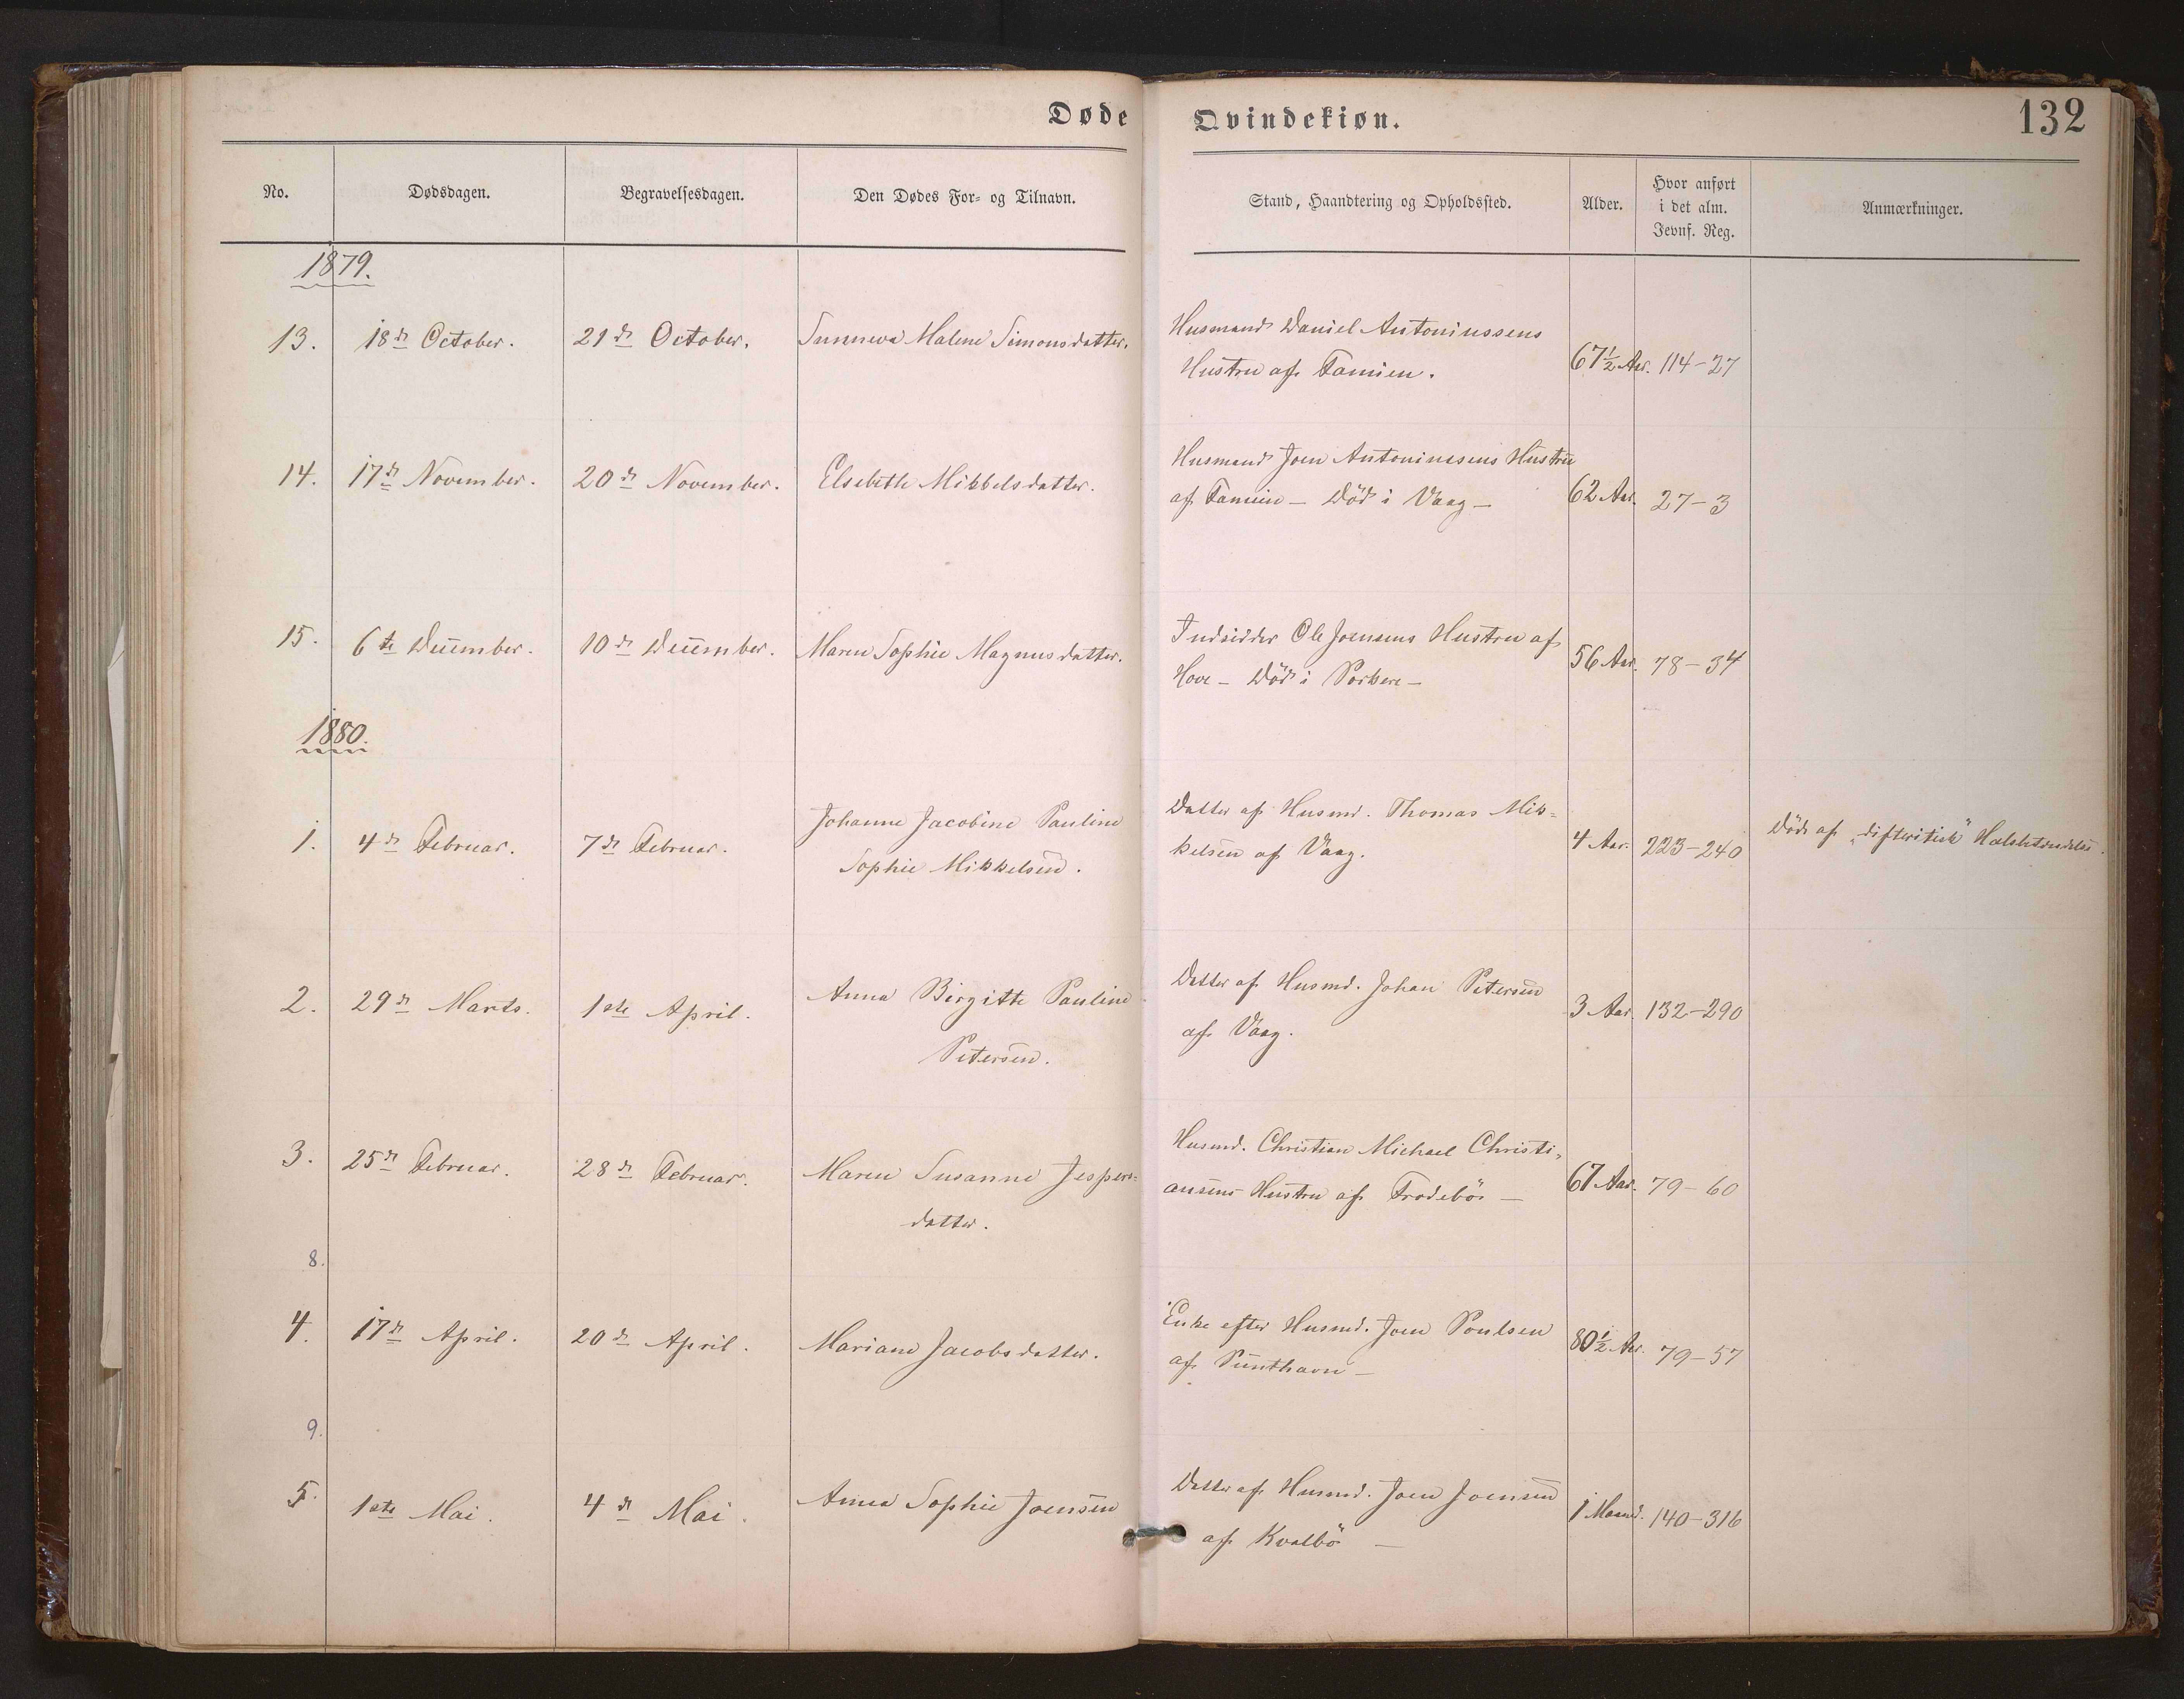 Døde Qvindekiøn. 132
No. Dødsdagen. Begravelsesdagen. Den Dødes For- og Tilnavn. Stand, Haandtering og Opholdssted. Alder. Hvor anført i det alm. Jevnf. Reg. Anmærkninger.
1879.
13. 18de October. 21de October. Sunneva Malene Simonsdatter. Husmand Daniel Antoniussens
Hustru af Famien. 67½ Aar. 114-27
14. 17de November. 20de November. Elsebeth Mikkelsdatter. Husmand Joen Antoniussens Hustru
af Famien - Död i Vaag - 62 Aar. 27-3
15. 6te December. 10de December. Maren Sophie Magnusdatter. Indsidder Ole Joensens Hustru af
Hove - Död i Porkere - 56 Aar. 78-34
1880.
1. 4de Februar. 7de Februar. Johanne Jacobine Pauline
Sophie Mikkelsen. Datter af Husmd. Thomas Mik-
kelsen af Vaag. 4 Aar. 223-240 Död af "difteritisk" Halsbetændelse.
2. 29de Marts. 1ste April. Anna Birgitte Pauline
Petersen. Datter af Husmd. Johan Petersen
af Vaag. 3 Aar. 132-290
3. 25de Februar. 28de Februar. Maren Susanne Jespers-
datter. Husmd. Christian Michael Christi-
ansens Hustru af Frodebö - 67 Aar. 79-60
8.
4. 17de April. 20de April. Mariane Jacobsdatter. Enke efter Husmd. Joen Poulsen
af Punthavn - 80½ Aar. 79-57
9.
5. 1ste Mai. 4de Mai. Anna Sophie Joensen Datter af Husmd. Joen Joensen
af Kvalbö - 1 Maaned. 140-316